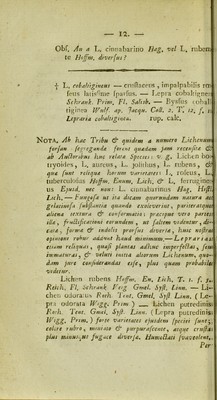 — 12. —
Obs. An a L. cinnabarino Hag. vel L. ruben-
te Hoffm. diversus?
† L. cobaltigineus — crustaceus, impalpabilis ro-
seus latissime sparsus. — Lepra cobaltiginea
Schrank. Prim. Fl. Salisb. — Byssus cobalti-
riginea Wulf. ap. Jacqu. Coll. 2, T.
Lepraria cobaltiginea. rup. calc.
NOTA. Ab hac Tribu & quidem a numero Lichenum
forsan segreganda forent quaedam jam recensita &
ab Auctoribus huc relata Species: v. g. Lichen bo-
tryoides, L. aureus, L. jolithus, L. rubens, &
quae sunt reliquae harum varietates: L. roseus, L.
tuberculosus Hoffm. Enum. Lich. & L. ferrugineus
us Ejusd. nec non: L. cinnabarinus Hag. Hist.
Lich. — Fungosa ut ita dicam quorundam natura aut
gelatinosa substantia quando exsiverint, pariterque
aliena textura & conformatio: praecipue vero partes
ita, fructificationi eorundem, ut saltem videntur, di-
cata, forma & indoles prorsus diversa, huic nostrae
opinioni robur adauxit haud minimum. — Leprarias
etiam reliquas, quasi plantas adhuc imperfectas, seu
immaturas, & veluti initia aliorum Lichenum, quo-
dam jure considerandas esse, plus quam probabile
videtur.
Lichen rubens Hoffm. En. Lich. T. 1. f. 5.
Reich. Fl. Schrank Verz Gmel. Syst. Linn. — Li-
chen odoratus Roth. Tent. Gmel. Syst Linn. (Le-
pra odorata Wigg. Prim.) — Lichen putredinis
Roth. Tent. Gmel. Syst. Linn. (Lepra putredinis
Wigg. Prim.) forte varietates ejusdem speciei sunt;
colore rubro, minioso & purpurascente, atque crustae
plus minusque fugace diversa. Humectati suaveolent.
Per